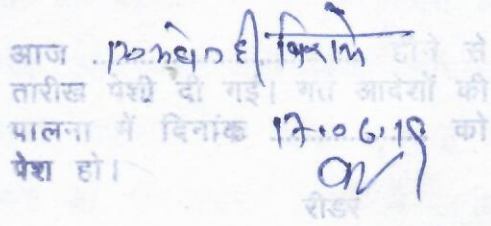 आज होने से
तारीख पेशी दी गई। गत आदेशों की
पालना में दिनांक 17.06.19 को
पेश हो।
रीडर